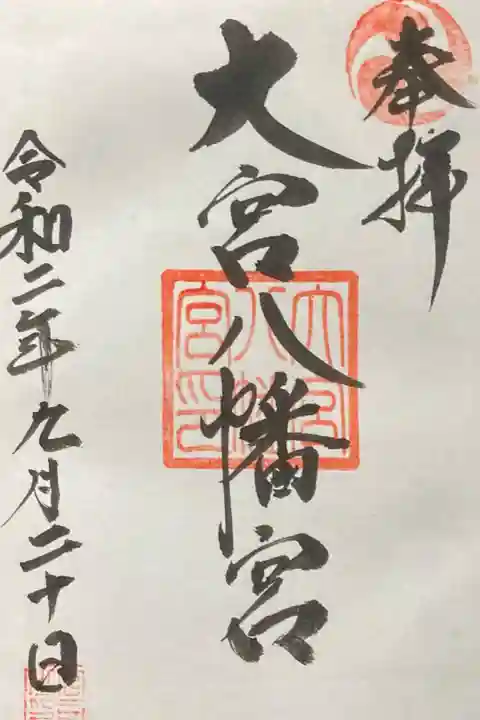 奉拝
大宮八幡宮
令和二年九月二十日
大宮八幡宮印